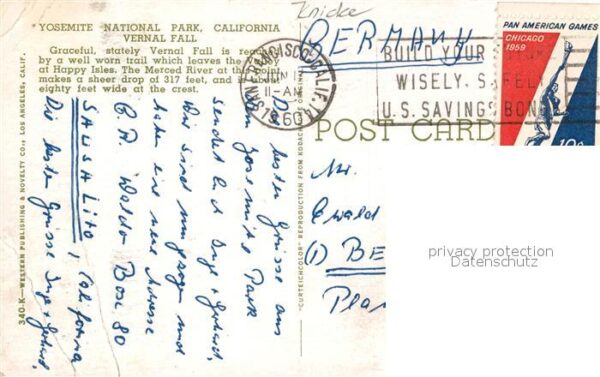 YOSEMITE NATIONAL PARK, CALIFORNIA
VERNAL FALL
Graceful, stately Vernal Fall is reached
by a well worn trail which leaves the valley
at Happy Isles. The Merced River at the point
makes a sheer drop of 317 feet, and is about
eighty feet wide at the crest.
340-K—WESTERN PUBLISHING & NOVELTY CO., LOS ANGELES, CALIF.
"CURTEICHCOLOR" REPRODUCTION FROM KODACHROME
SAN FRANCISCO, CALIF.
JUN 1
11-AM
1960
BUILD YOUR
WISELY, SAFELY
U.S. SAVINGS BONDS
PAN AMERICAN GAMES
CHICAGO
1959
10¢
GERMANY
POST CARD
Mr.
Ewald
(1) BE
Pla
Die besten Grüsse aus
dem Josemite Park
sendet Euch Inge + Gerhard,
Wir sind umgezogen und
haben eine neue Adresse
P.R. Waldo Box 80
SAUSALITO, California
Die besten Grüsse Inge + Gerhard,
privacy protection
Datenschutz